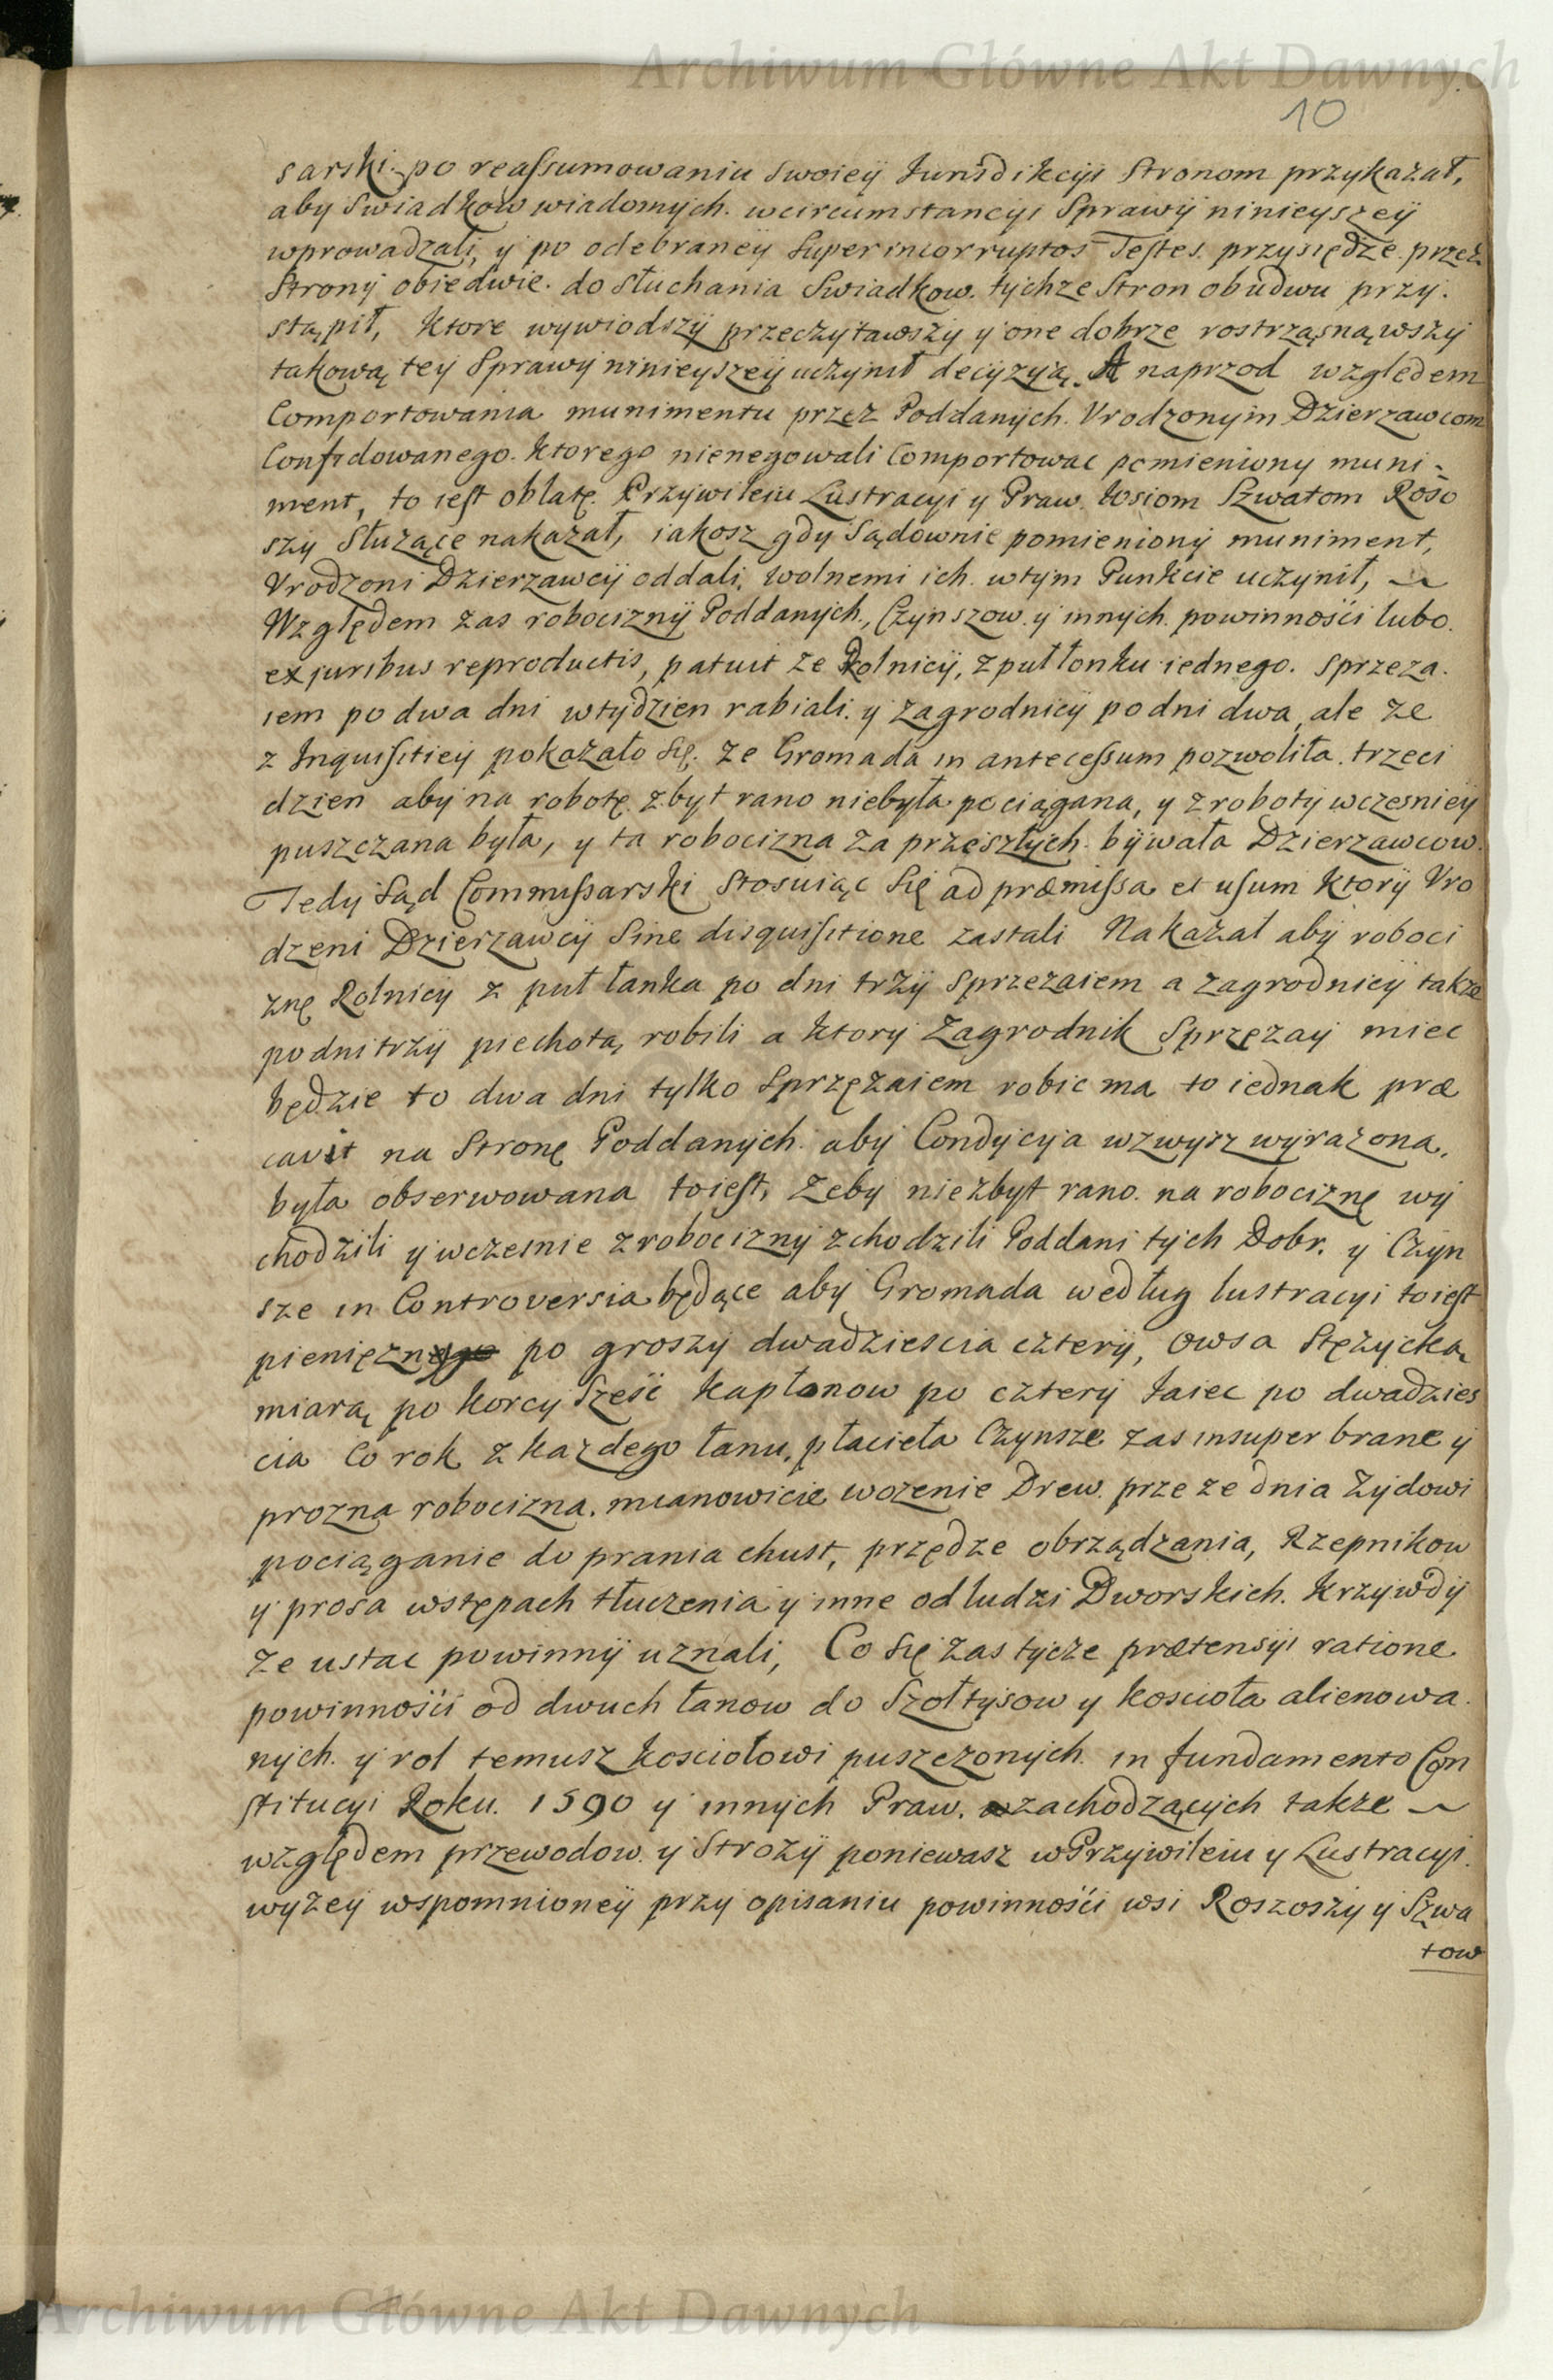 Archiwum Główne Akt Dawnych
10
sarski po reassumowaniu swoiey Iurisdikcyi Stronom przykazał,
aby Swiadkow wiadomych wcircumstancyi Sprawy ninieyszey
wprowadzali, y po odebraney super incorruptos Testes przysiędze przez
Strony obiedwie do słuchania Swiadkow tychze Stron obudwu przy-
stąpił, ktore wywiodszy przeczytawszy y one dobrze rostrząsnąwszy
takową tey Sprawy ninieyszey uczynił decyzyią. A naprzod względem
Comportowania munimentu przez Poddanych Vrodzonym Dzierzawcom
Confidowanego. Ktorego nienegowali Comportowac pomieniony muni-
ment, to iest oblatę Przywileiu Lustracyi y Praw Wsiom Szwatom Roso
szy słuząće nakazał, iakosz gdy Sądownie pomieniony muniment,
Vrodzoni Dzierzawcy oddali, wolnemi ich wtym Punkcie uczynił,
Względem zas robocizny Poddanych, Czynszow y innych powinności lubo
ex juribus reproductis, patuit ze Rolnicy, z puł łonku iednego sprzeza-
iem po dwa dni wtydzien rabiali y zagrodnicy po dni dwa, ale ze
z Inquisitiey pokazało się ze Gromada in antecessum pozwoliła trzeci
dzien aby na robotę zbyt rano niebyła pociągana, y z roboty wczesniey
puszczana była, y ta robocizna za przeszłych bywała Dzierzawcow.
Tedy Sąd Commissarski Stosuiąc Się ad præmissa et usum ktory Vro
dzeni Dzierzawcy Sine disquisitione zastali Nakazał aby roboci
znę Rolnicy z puł łanka po dni trzy Sprzezaiem a zagrodnicy takze
po dni trzy piechotą robili a ktory Zagrodnik Sprzęzay miec
będzie to dwa dni tylko Sprzęzaiem robic ma to iednak præ
cavit na Stronę Poddanych aby Condycyia wzwysz wyrazona,
była obserwowana toiest, Zeby niezbyt rano na robociznę wy
chodzili y wczesnie z robocizny zchodzili Poddani tych Dobr. y Czyn
sze in Controversia będące aby Gromada według lustracyi toiest
pienięzn po groszy dwadziescia cztery, owsa Stęzycką
miarą po korcy Sześć kapłonow po cztery Iaiec po dwadzies
cia Co rok z kazdego łanu, płacieła Czynsze zas insuper brane y
prozna robocizna, mianowicie wozenie Drew przeze dnia Zydowi
pociąganie do prania chust, przędze obrządzania, Rzepnikow
y prosa wstępach tłuczenia y inne od ludzi Dworskich krzywdy
ze ustac powinny uznali, Co Się zas tycze prætensyi ratione
powinności od dwuch łanow do Szołtysow y koscioła alienowa
nych y rol temusz kosciołowi puszczonych in fundamento Con
stitucyi Roku 1590 y innych Praw zachodzących takze
względem przewodow y Strozy poniewasz w Przywileiu y Lustracyi
wyzey wspomnioney przy opisaniu powinności wsi Roszoszy y Szwa
tow
Archiwum Główne Akt Dawnych